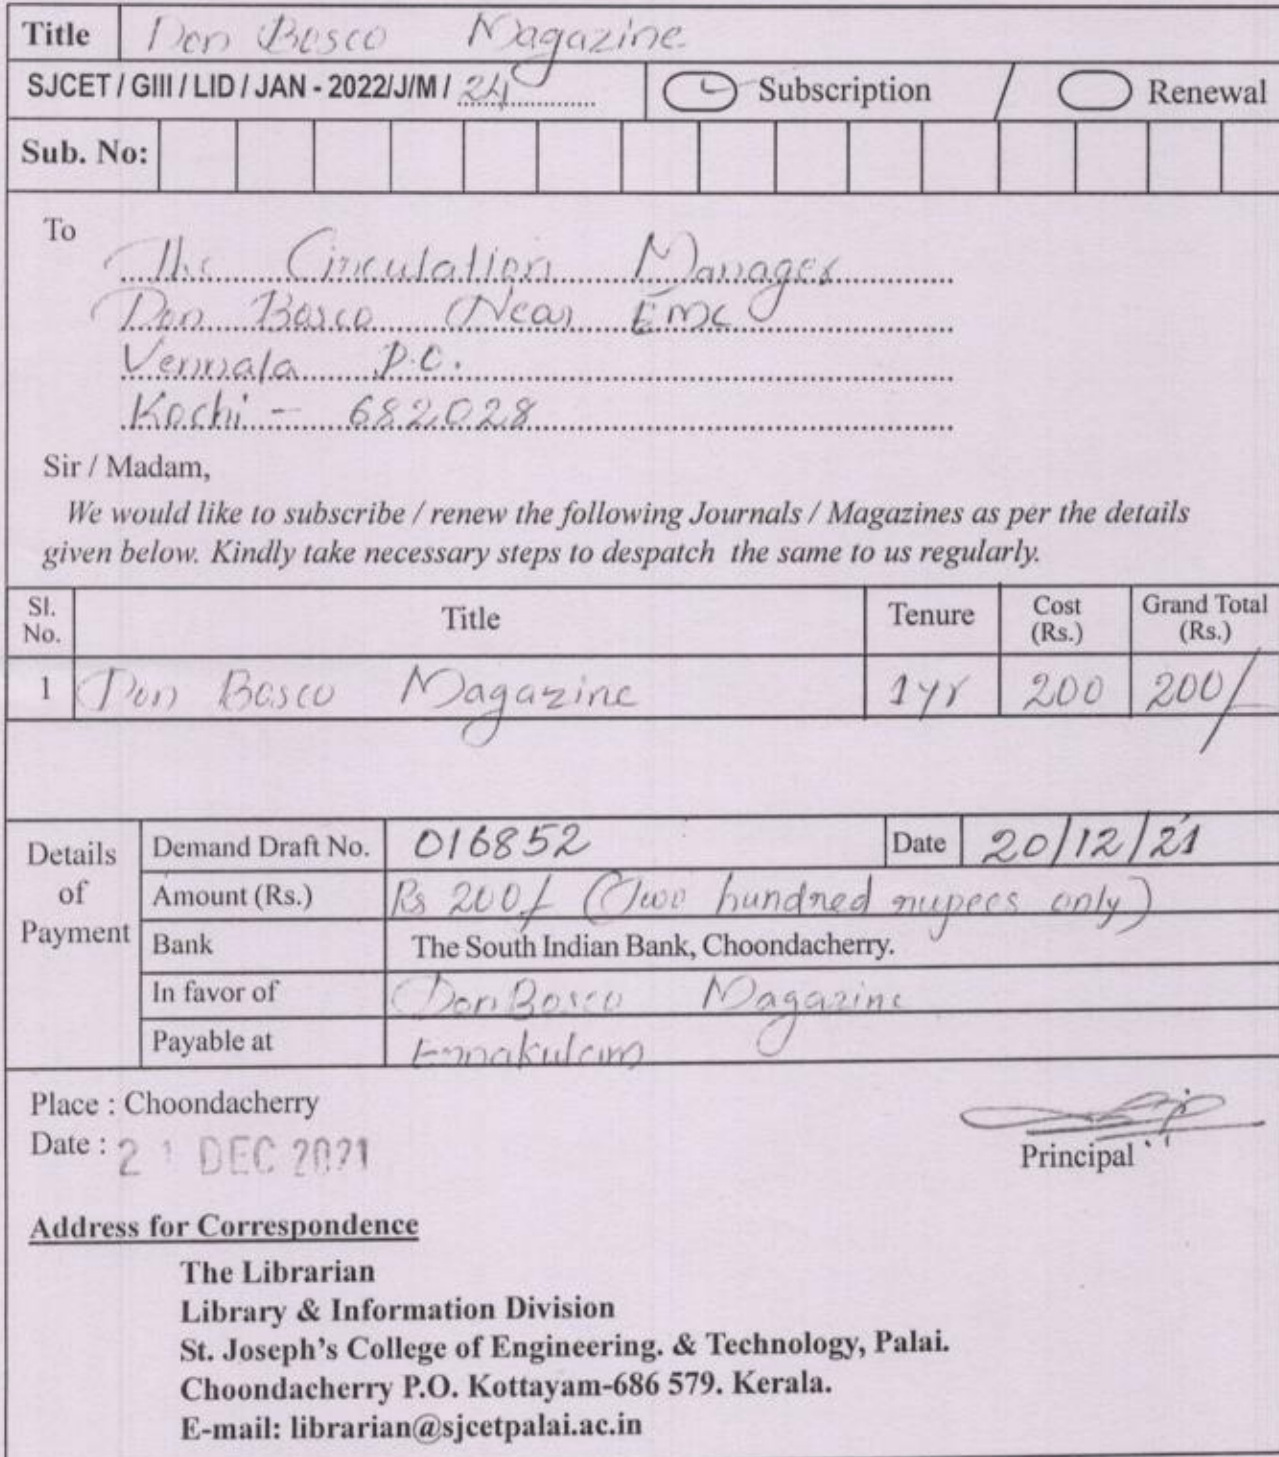 Title Don Bosco Magazine
SJCET / GIII / LID / JAN - 2022/J/M / 24 Subscription / Renewal
Sub. No:
To
The Circulation Manager
Don Bosco Near EMC
Vennala P.O.
Kochi - 682028
Sir / Madam,
We would like to subscribe / renew the following Journals / Magazines as per the details
given below. Kindly take necessary steps to despatch the same to us regularly.
Sl. No. Title Tenure Cost (Rs.) Grand Total (Rs.)
1 Don Bosco Magazine 1yr 200 200/-
Details of Payment
Demand Draft No. 016852 Date 20/12/21
Amount (Rs.) Rs 200/- (Two hundred rupees only)
Bank The South Indian Bank, Choondacherry.
In favor of Don Bosco Magazine
Payable at Ernakulam
Place : Choondacherry
Date : 21 DEC 2021
Principal
Address for Correspondence
The Librarian
Library & Information Division
St. Joseph's College of Engineering. & Technology, Palai.
Choondacherry P.O. Kottayam-686 579. Kerala.
E-mail: librarian@sjcetpalai.ac.in